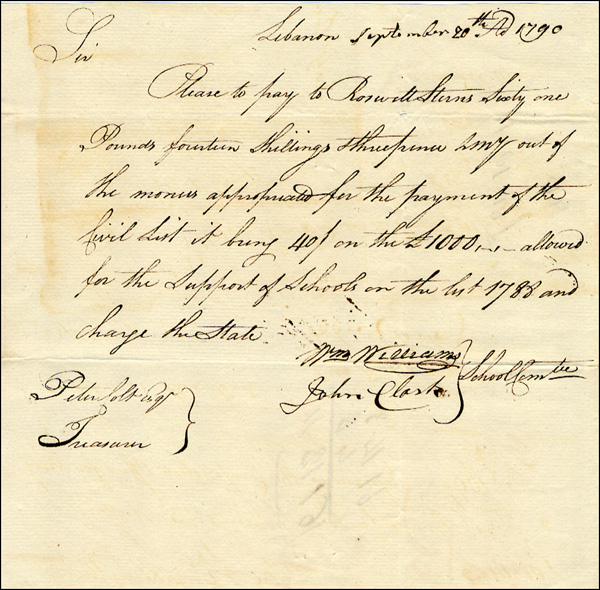 Lebanon September 20th AD 1790
Sir
Please to pay to Roswell Sterns Sixty one
Pounds fourteen Shillings threepence LMy out of
the monies appropriated for the payment of the
Civil List it being 40/ on the £1000 allowed
for the Support of Schools on the list 1788 and
charge the State
Wm Williams
John Clark
School Comtee
Peter Colt Esqr
Treasurer